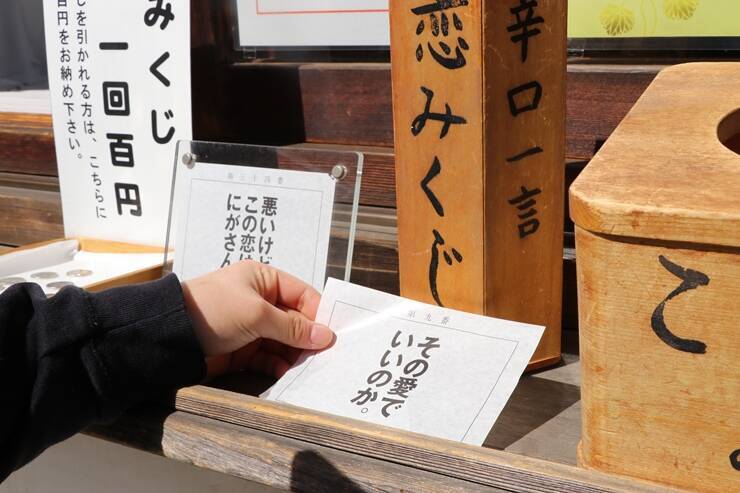 みくじ
一回百円
じを引かれる方は、こちらに
百円をお納め下さい。
第三十四番
悪いけど
この恋は
にがさん
恋みくじ
辛口一言
第九番
その愛で
いいのか。
こ